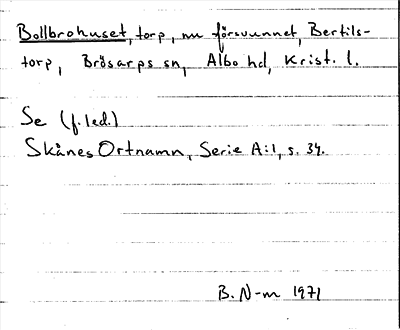 Bollbrohuset, torp, nu försvunnet, Bertils-
torp, Brösarps sn, Albo hd, Krist. l.
Se (f. led.)
Skånes Ortnamn, Serie A:1, s. 34.
B. N-m 1971